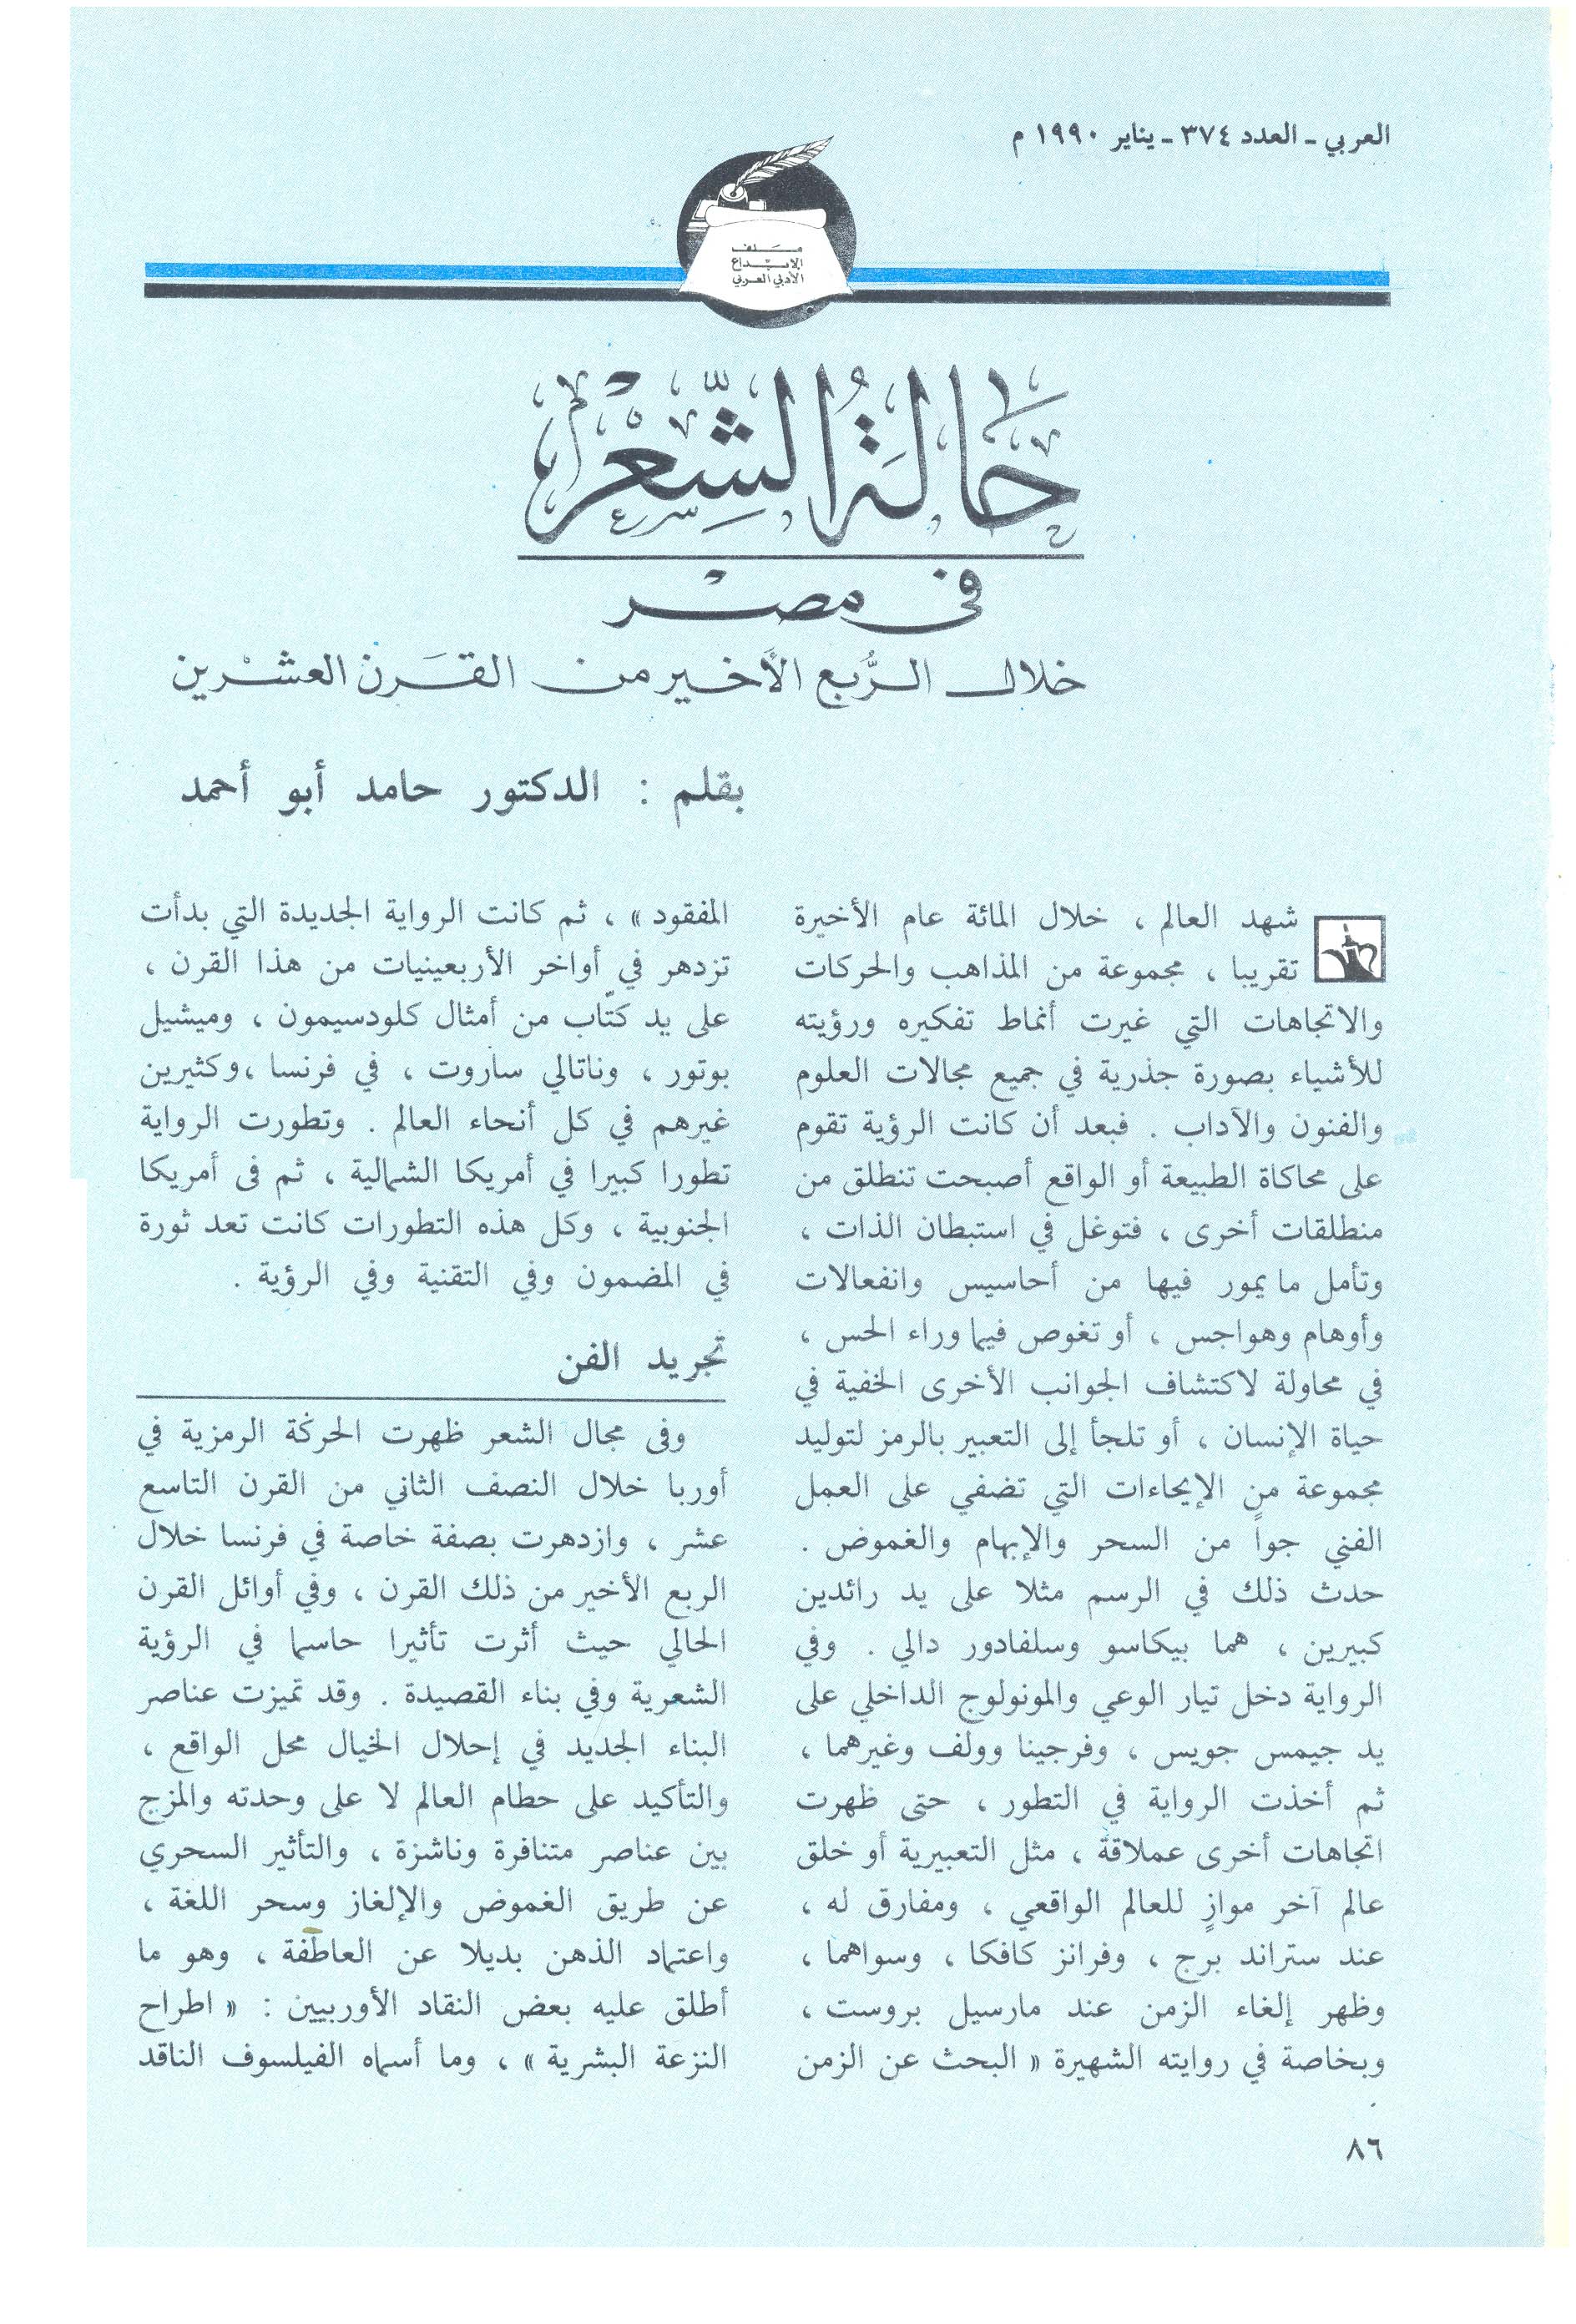 العربي ـ العدد ٣٧٤ ـ يناير ١٩٩٠ م
ملف
الإبداع
الأدبي العربي
حَالَةُ الشِّعْرْ
فى مصْر
خلال الرُّبع الأَخير من القَرن العشْرين
بقلم : الدكتور حامد أبو أحمد
شهد العالم ، خلال المائة عام الأخيرة
تقريبا ، مجموعة من المذاهب والحركات
والاتجاهات التي غيرت أنماط تفكيره ورؤيته
للأشياء بصورة جذرية في جميع مجالات العلوم
والفنون والآداب . فبعد أن كانت الرؤية تقوم
على محاكاة الطبيعة أو الواقع أصبحت تنطلق من
منطلقات أخرى ، فتوغل في استبطان الذات ،
وتأمل ما يمور فيها من أحاسيس وانفعالات
وأوهام وهواجس ، أو تغوص فيما وراء الحس ،
في محاولة لاكتشاف الجوانب الأخرى الخفية في
حياة الإنسان ، أو تلجأ إلى التعبير بالرمز لتوليد
مجموعة من الإيحاءات التي تضفي على العمل
الفني جواً من السحر والإبهام والغموض .
حدث ذلك في الرسم مثلا على يد رائدين
كبيرين ، هما بيكاسو وسلفادور دالي . وفي
الرواية دخل تيار الوعي والمونولوج الداخلي على
يد جيمس جويس ، وفرجينا وولف وغيرهما ،
ثم أخذت الرواية في التطور ، حتى ظهرت
اتجاهات أخرى عملاقة ، مثل التعبيرية أو خلق
عالم آخر موازٍ للعالم الواقعي ، ومفارق له ،
عند ستراند برج ، وفرانز كافكا ، وسواهما ،
وظهر إلغاء الزمن عند مارسيل بروست ،
وبخاصة في روايته الشهيرة « البحث عن الزمن
المفقود » ، ثم كانت الرواية الجديدة التي بدأت
تزدهر في أواخر الأربعينيات من هذا القرن ،
على يد كتّاب من أمثال كلودسيمون ، وميشيل
بوتور ، وناتالي ساروت ، في فرنسا ،وكثيرين
غيرهم في كل أنحاء العالم . وتطورت الرواية
تطورا كبيرا في أمريكا الشمالية ، ثم فى أمريكا
الجنوبية ، وكل هذه التطورات كانت تعد ثورة
في المضمون وفي التقنية وفي الرؤية .
تجريد الفن
وفى مجال الشعر ظهرت الحركة الرمزية في
أوربا خلال النصف الثاني من القرن التاسع
عشر ، وازدهرت بصفة خاصة في فرنسا خلال
الربع الأخير من ذلك القرن ، وفي أوائل القرن
الحالي حيث أثرت تأثيرا حاسما في الرؤية
الشعرية وفي بناء القصيدة . وقد تميزت عناصر
البناء الجديد في إحلال الخيال محل الواقع ،
والتأكيد على حطام العالم لا على وحدته والمزج
بين عناصر متنافرة وناشزة ، والتأثير السحري
عن طريق الغموض والإلغاز وسحر اللغة ،
واعتماد الذهن بديلا عن العاطفة ، وهو ما
أطلق عليه بعض النقاد الأوربيين : « اطراح
النزعة البشرية » ، وما أسماه الفيلسوف الناقد
٨٦